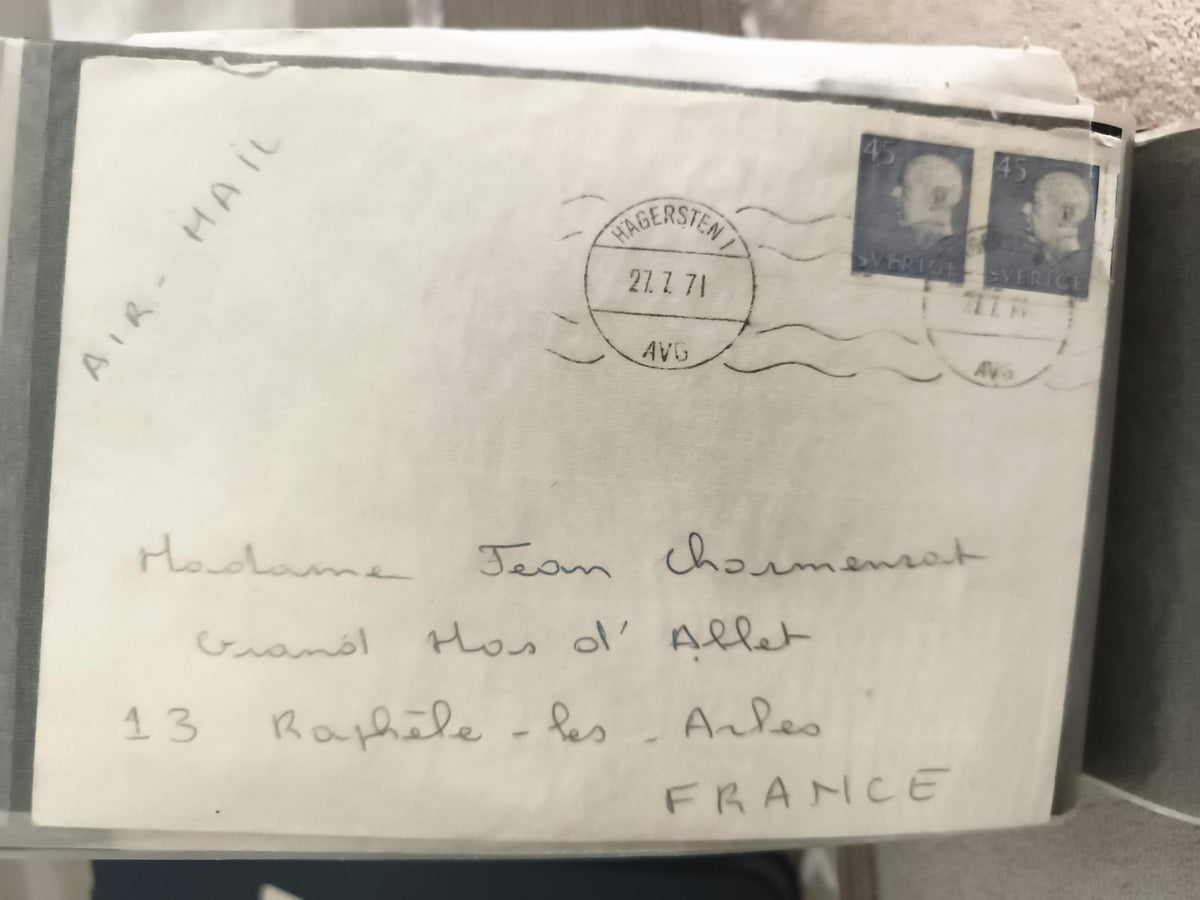 AIR-MAIL
HÄGERSTEN 1
27.7.71
AVG
45
SVERIGE
45
SVERIGE
AVG
Madame Jean Charmensat
Grand Mas d'Allet
13 Raphèle-les-Arles
FRANCE